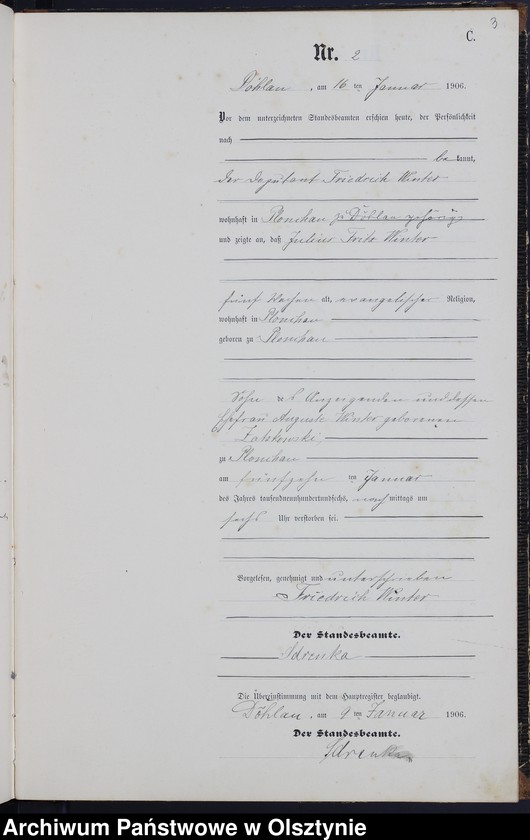 3
C.
Nr. 2
Döhlau, am 16 ten Januar 1906.
Vor dem unterzeichneten Standesbeamten erschien heute, der Persönlichkeit
nach
be kannt,
der Deputant Friedrich Winter
wohnhaft in Plonchau zu Döhlau gehörig
und zeigte an, daß Julius Fritz Winter
fünf Wochen alt, evangelischer Religion,
wohnhaft in Plonchau
geboren zu Plonchau
Sohn des Anzeigenden und dessen
Ehefrau Auguste Winter geborenen
zu Plonchau
am fünfzehn ten Januar
des Jahres tausendneunhundertundsechs, nachmittags um
sechs Uhr verstorben sei.
Vorgelesen, genehmigt und unterschrieben
Friedrich Winter
Der Standesbeamte.
Sdrenka
Die Übereinstimmung mit dem Hauptregister beglaubigt.
Döhlau, am ten Januar 1906.
Der Standesbeamte.
Sdrenka
Archiwum Państwowe w Olsztynie